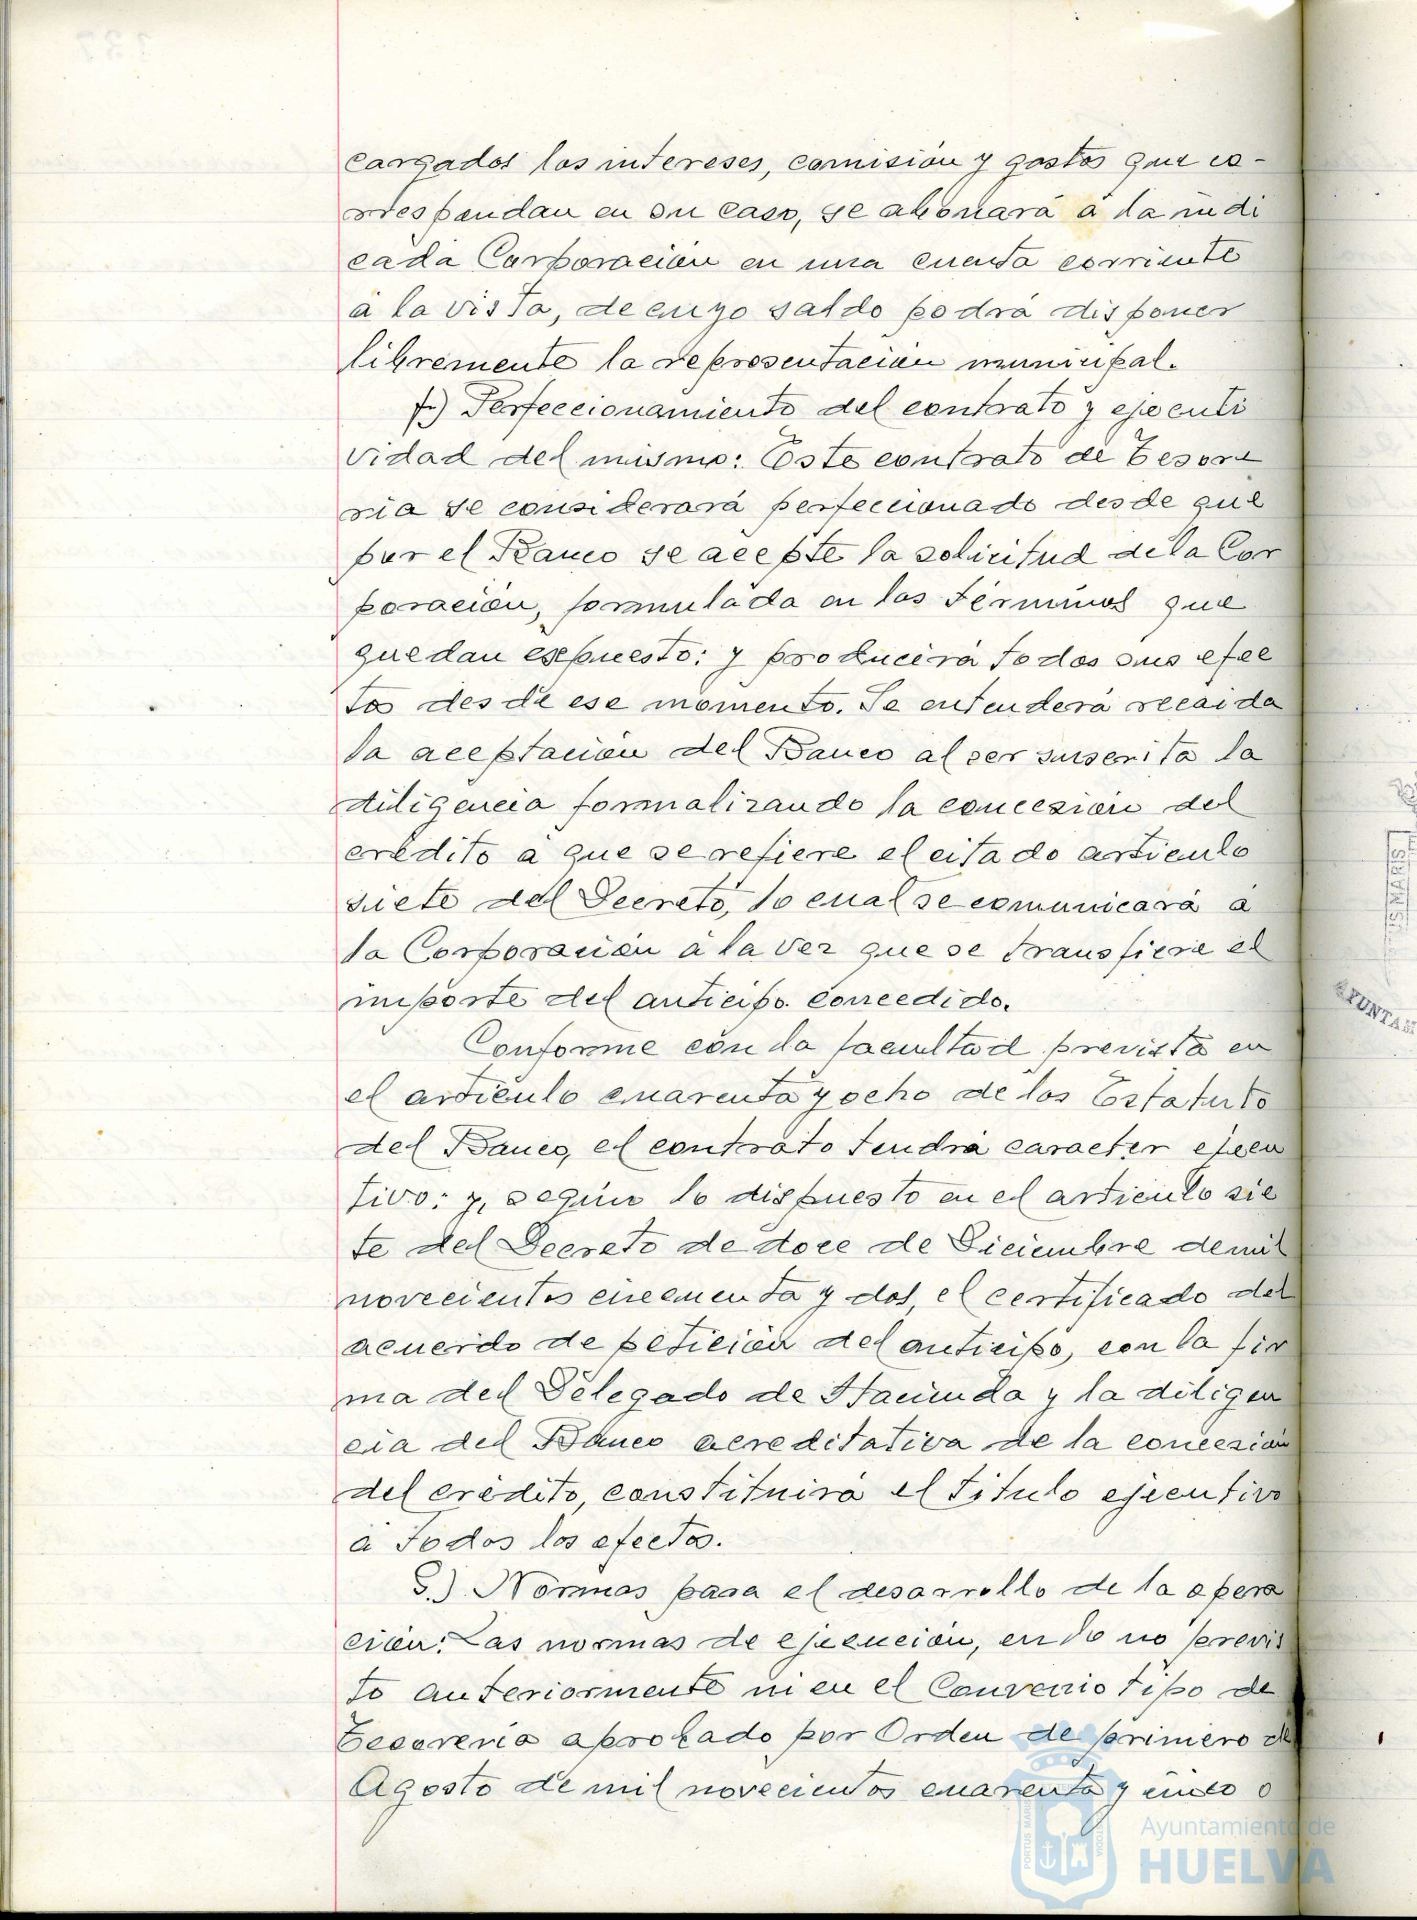 cargados los intereses, comisión y gastos que co-
rrespondan en su caso, se abonará á la indi
cada Corporación en una cuenta corriente
á la vista, de cuyo saldo podrá disponer
libremente la representación municipal.
f.) Perfeccionamiento del contrato y ejecuti
vidad del mismo: Este contrato de Tesore
ria se considerará perfeccionado desde que
por el Banco se acepte la solicitud de la Cor
poración, formulada en los términos que
quedan expuesto: y producirá todos sus efec
tos desde ese momento. Se entenderá recaida
la aceptación del Banco al ser suscrita la
diligencia formalizando la concesión del
crédito á que se refiere el citado articulo
siete del Decreto, lo cual se comunicará á
la Corporación á la vez que se transfiere el
importe del anticipo concedido.
Conforme con la facultad prevista en
el articulo cuarenta y ocho de los Estatuto
del Banco, el contrato tendrá caracter ejecu
tivo: y, según lo dispuesto en el articulo sie
te del Decreto de doce de Diciembre de mil
novecientos cincuenta y dos, el certificado del
acuerdo de petición del anticipo, con la fir
ma del Delegado de Hacienda y la diligen
cia del Banco acreditativa de la concesión
del crédito, constituirá el titulo ejecutivo
á todos los efectos.
G.) Normas para el desarrollo de la opera
ción: Las normas de ejecución, en lo no previs
to anteriormente ni en el Convenio tipo de
Tesoreria aprobado por Orden de primero de
Agosto de mil novecientos cuarenta y cinco o
Ayuntamiento de
HUELVA